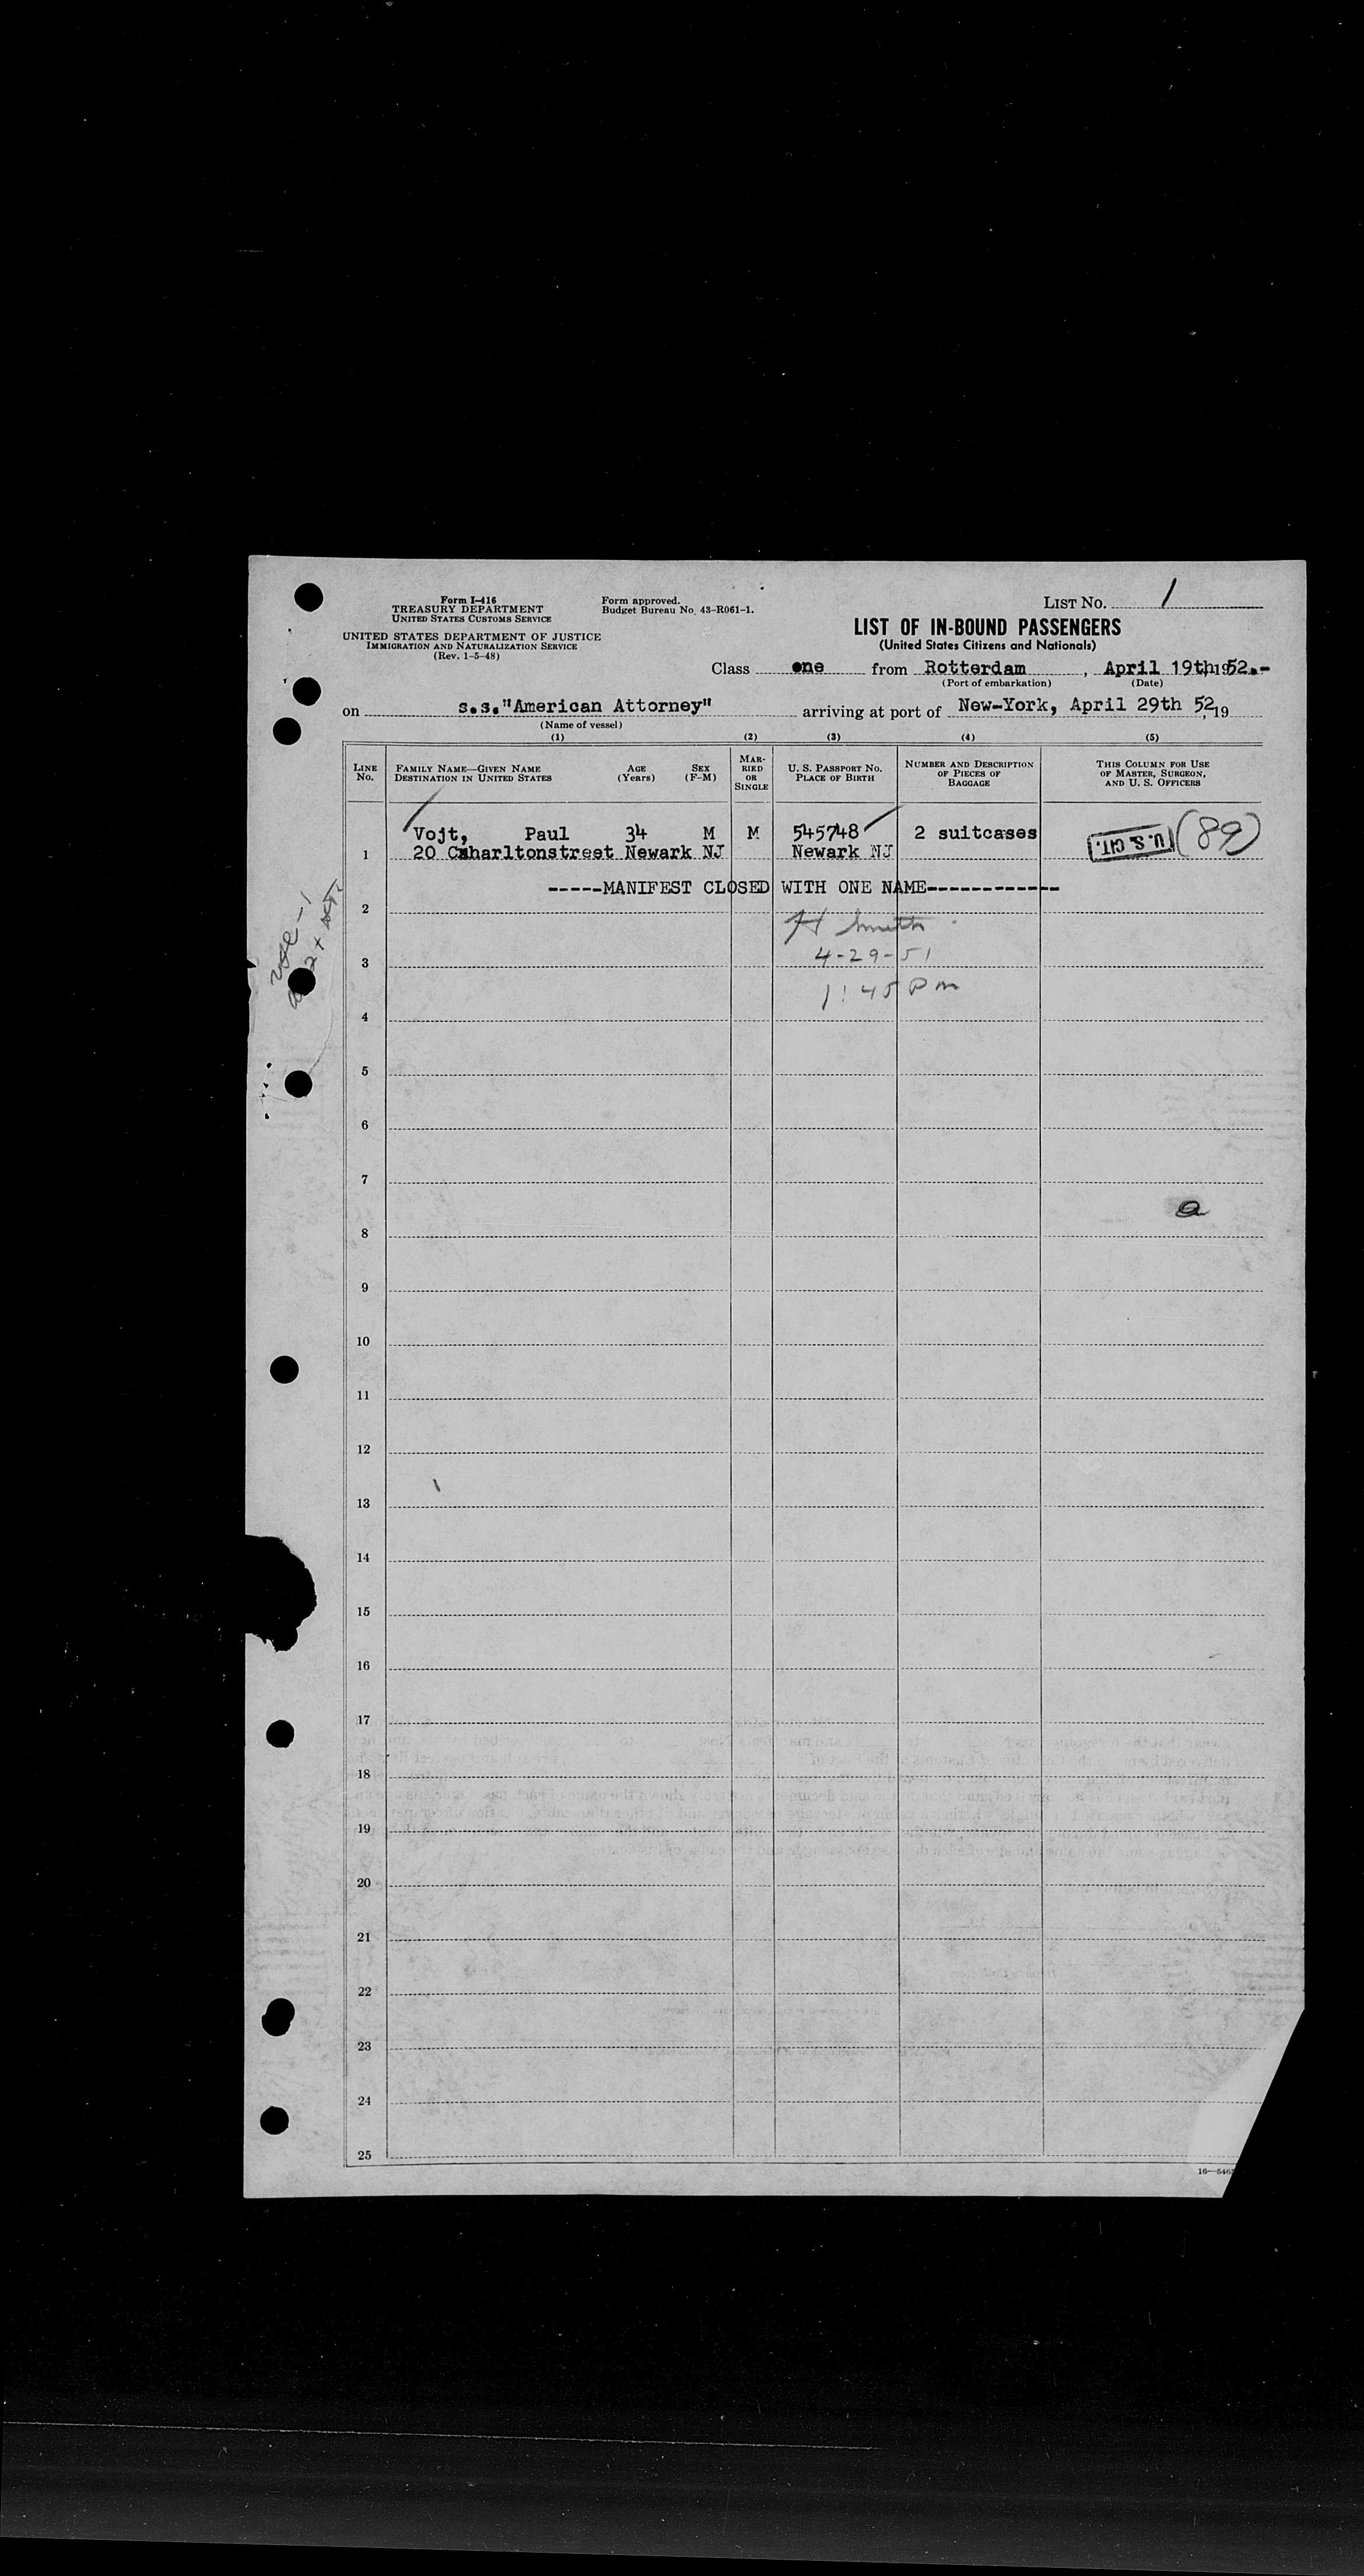 Form I-416
TREASURY DEPARTMENT
UNITED STATES CUSTOMS SERVICE
UNITED STATES DEPARTMENT OF JUSTICE
IMMIGRATION AND NATURALIZATION SERVICE
(Rev. 1-5-48)
Form approved.
Budget Bureau No. 43-R061-1.
LIST No. 1
LIST OF IN-BOUND PASSENGERS
(United States Citizens and Nationals)
Class one from Rotterdam, April 19th 1952.-
(Port of embarkation) (Date)
on s.s."American Attorney" arriving at port of New-York, April 29th 52, 19
(Name of vessel)
(1) (2) (3) (4) (5)
LINE No. FAMILY NAME—GIVEN NAME DESTINATION IN UNITED STATES AGE (Years) SEX (F-M) MARRIED OR SINGLE U. S. PASSPORT No. PLACE OF BIRTH NUMBER AND DESCRIPTION OF PIECES OF BAGGAGE THIS COLUMN FOR USE OF MASTER, SURGEON, AND U. S. OFFICERS
Vojt, Paul 34 M M 545748 2 suitcases U. S. CIT. (89)
1 20 Charltonstreet Newark NJ Newark NJ
-----MANIFEST CLOSED WITH ONE NAME------------
2
H Smith
3 4-29-51
1:45 Pm
4
5
6
7
8
9
10
11
12
13
14
15
16
17
18
19
20
21
22
23
24
25